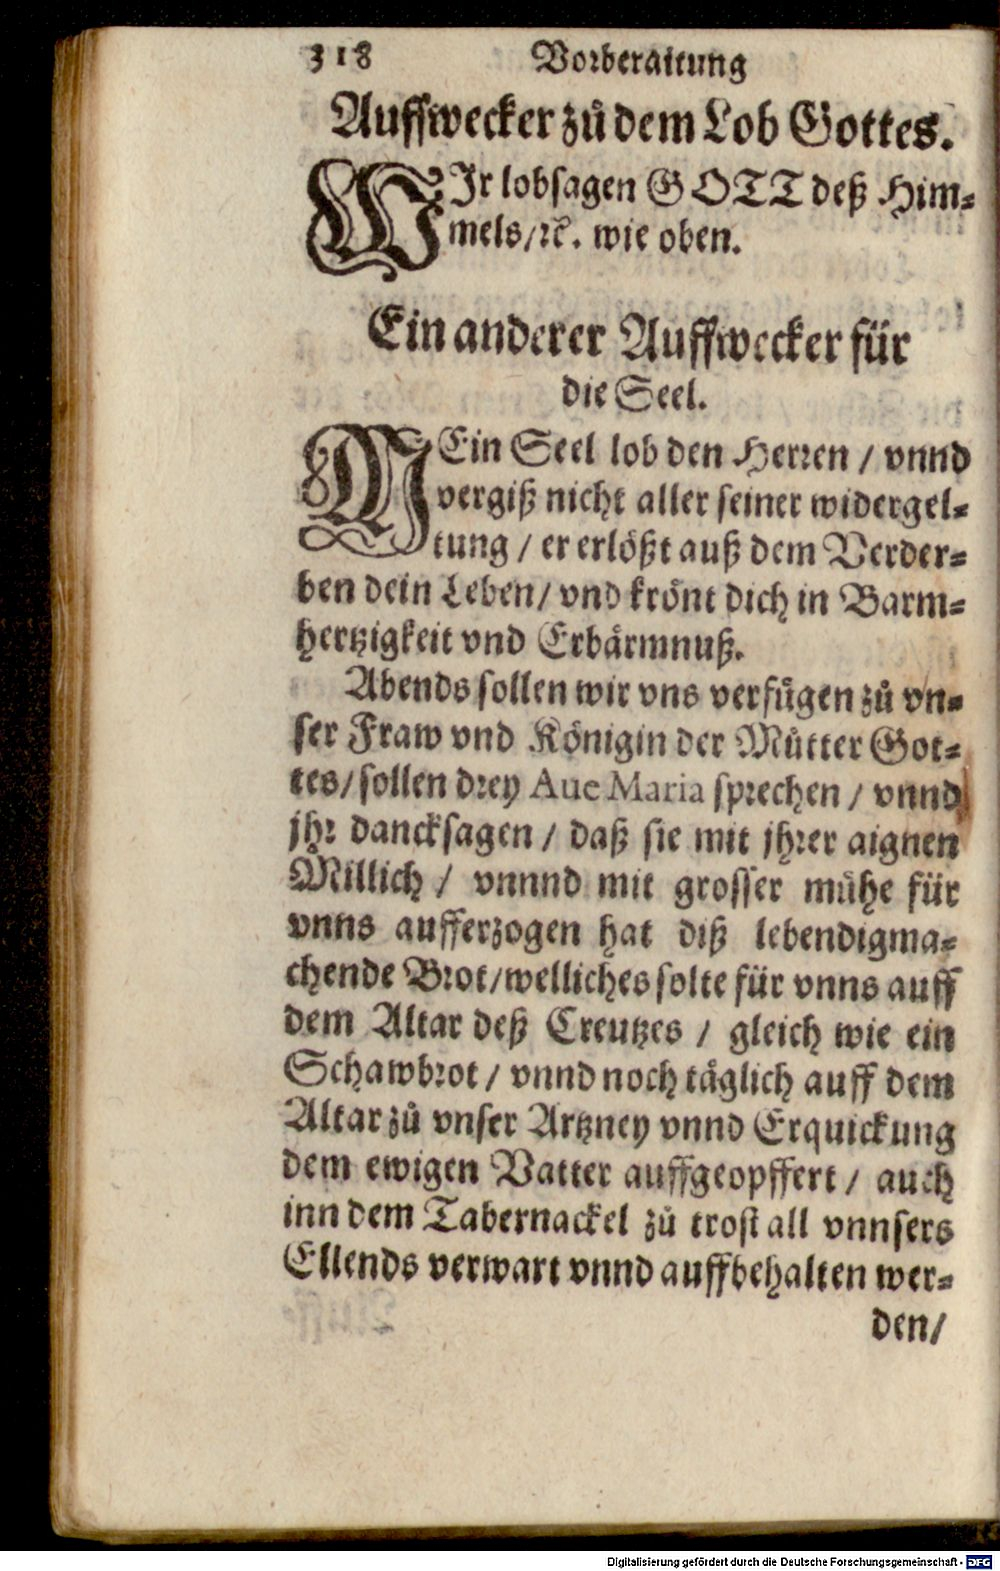 318 Vorberaitung
Auffwecker zů dem Lob Gottes.
WIr lobsagen GOTT deß Him-
mels/ꝛc. wie oben.
Ein anderer Auffwecker für
die Seel.
MEin Seel lob den Herren / vnnd
vergiß nicht aller seiner widergel-
tung / er erlößt auß dem Verder-
ben dein Leben/ vnd krönt dich in Barm-
hertzigkeit vnd Erbärmnuß.
Abends sollen wir vns verfügen zů vn-
ser Fraw vnd Königin der Můtter Got-
tes/ sollen drey Aue Maria sprechen / vnnd
jhr dancksagen / daß sie mit jhrer aignen
Millich / vnnnd mit grosser mühe für
vnns aufferzogen hat diß lebendigma-
chende Brot/welliches solte für vnns auff
dem Altar deß Creutzes / gleich wie ein
Schawbrot / vnnd noch täglich auff dem
Altar zů vnser Artzney vnnd Erquickung
dem ewigen Vatter auffgeopffert / auch
inn dem Tabernackel zů trost all vnnsers
Ellends verwart vnnd auffbehalten wer-
den/
Digitalisierung gefördert durch die Deutsche Forschungsgemeinschaft - DFG